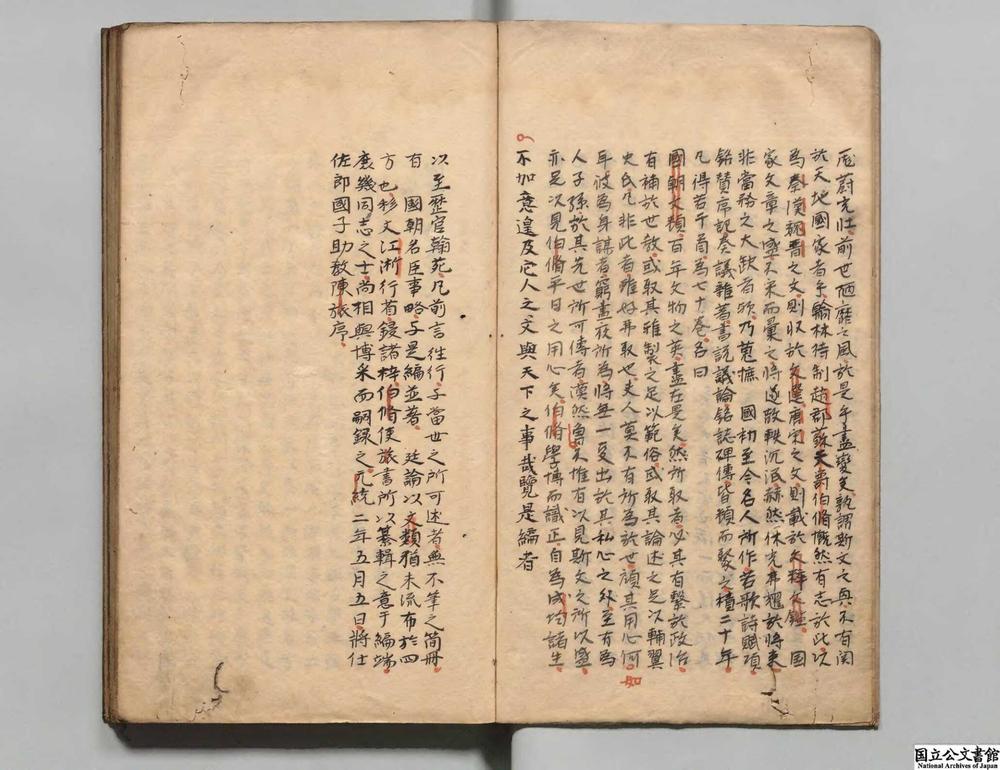 厖蔚光壯前世陋靡之風於是乎盡變矣孰謂斯文之興不有関
於天地國家者乎翰林待制趙郡蘇天爵伯脩慨然有志於此以
為秦漢魏晋之文則収於文選唐宋之文則載於文粹文鑑 國
家文章之盛不采而彙之將遂散軼沉泯赫然休光弗耀於將来
非當務之大缺者歟乃蒐摭 國初至今名人所作若歌詩賦頌
銘賛序記奏議雜著書說議論銘誌碑傳皆類而聚之積二十年
凡得若干首為七十巻名曰
國朝文類百年文物之英盡在是矣然所取者必其有繫於政治
有補於世教或取其雅製之足以範俗或取其論述之足以輔翼
史氏凡非此者雖好弗取也夫人莫不有所為於世顧其用心何如
年彼為身謀者窮晝夜所為將無一毫出於其私心之外至有為
人子孫於其先世所可傳者漠然曾不惟有以見斯文之所以盛
亦足以見伯脩平日之用心矣伯脩學博而識正自為成均諸生
不加意遑及它人之文與天下之事哉覽是編者
以至歷官翰苑凡前言徃行子當世之所可述者無不筆之簡冊
有 國朝名臣事略子是編並著 廷論以文類猶未流布於四
方也移文江淅行省鋟諸梓伯脩使旅書所以纂輯之意于編端
庻幾同志之士尚相與博采而嗣録之元統二年五月五日將仕
佐郎國子助教陳旅序
国立公文書館
National Archives of Japan